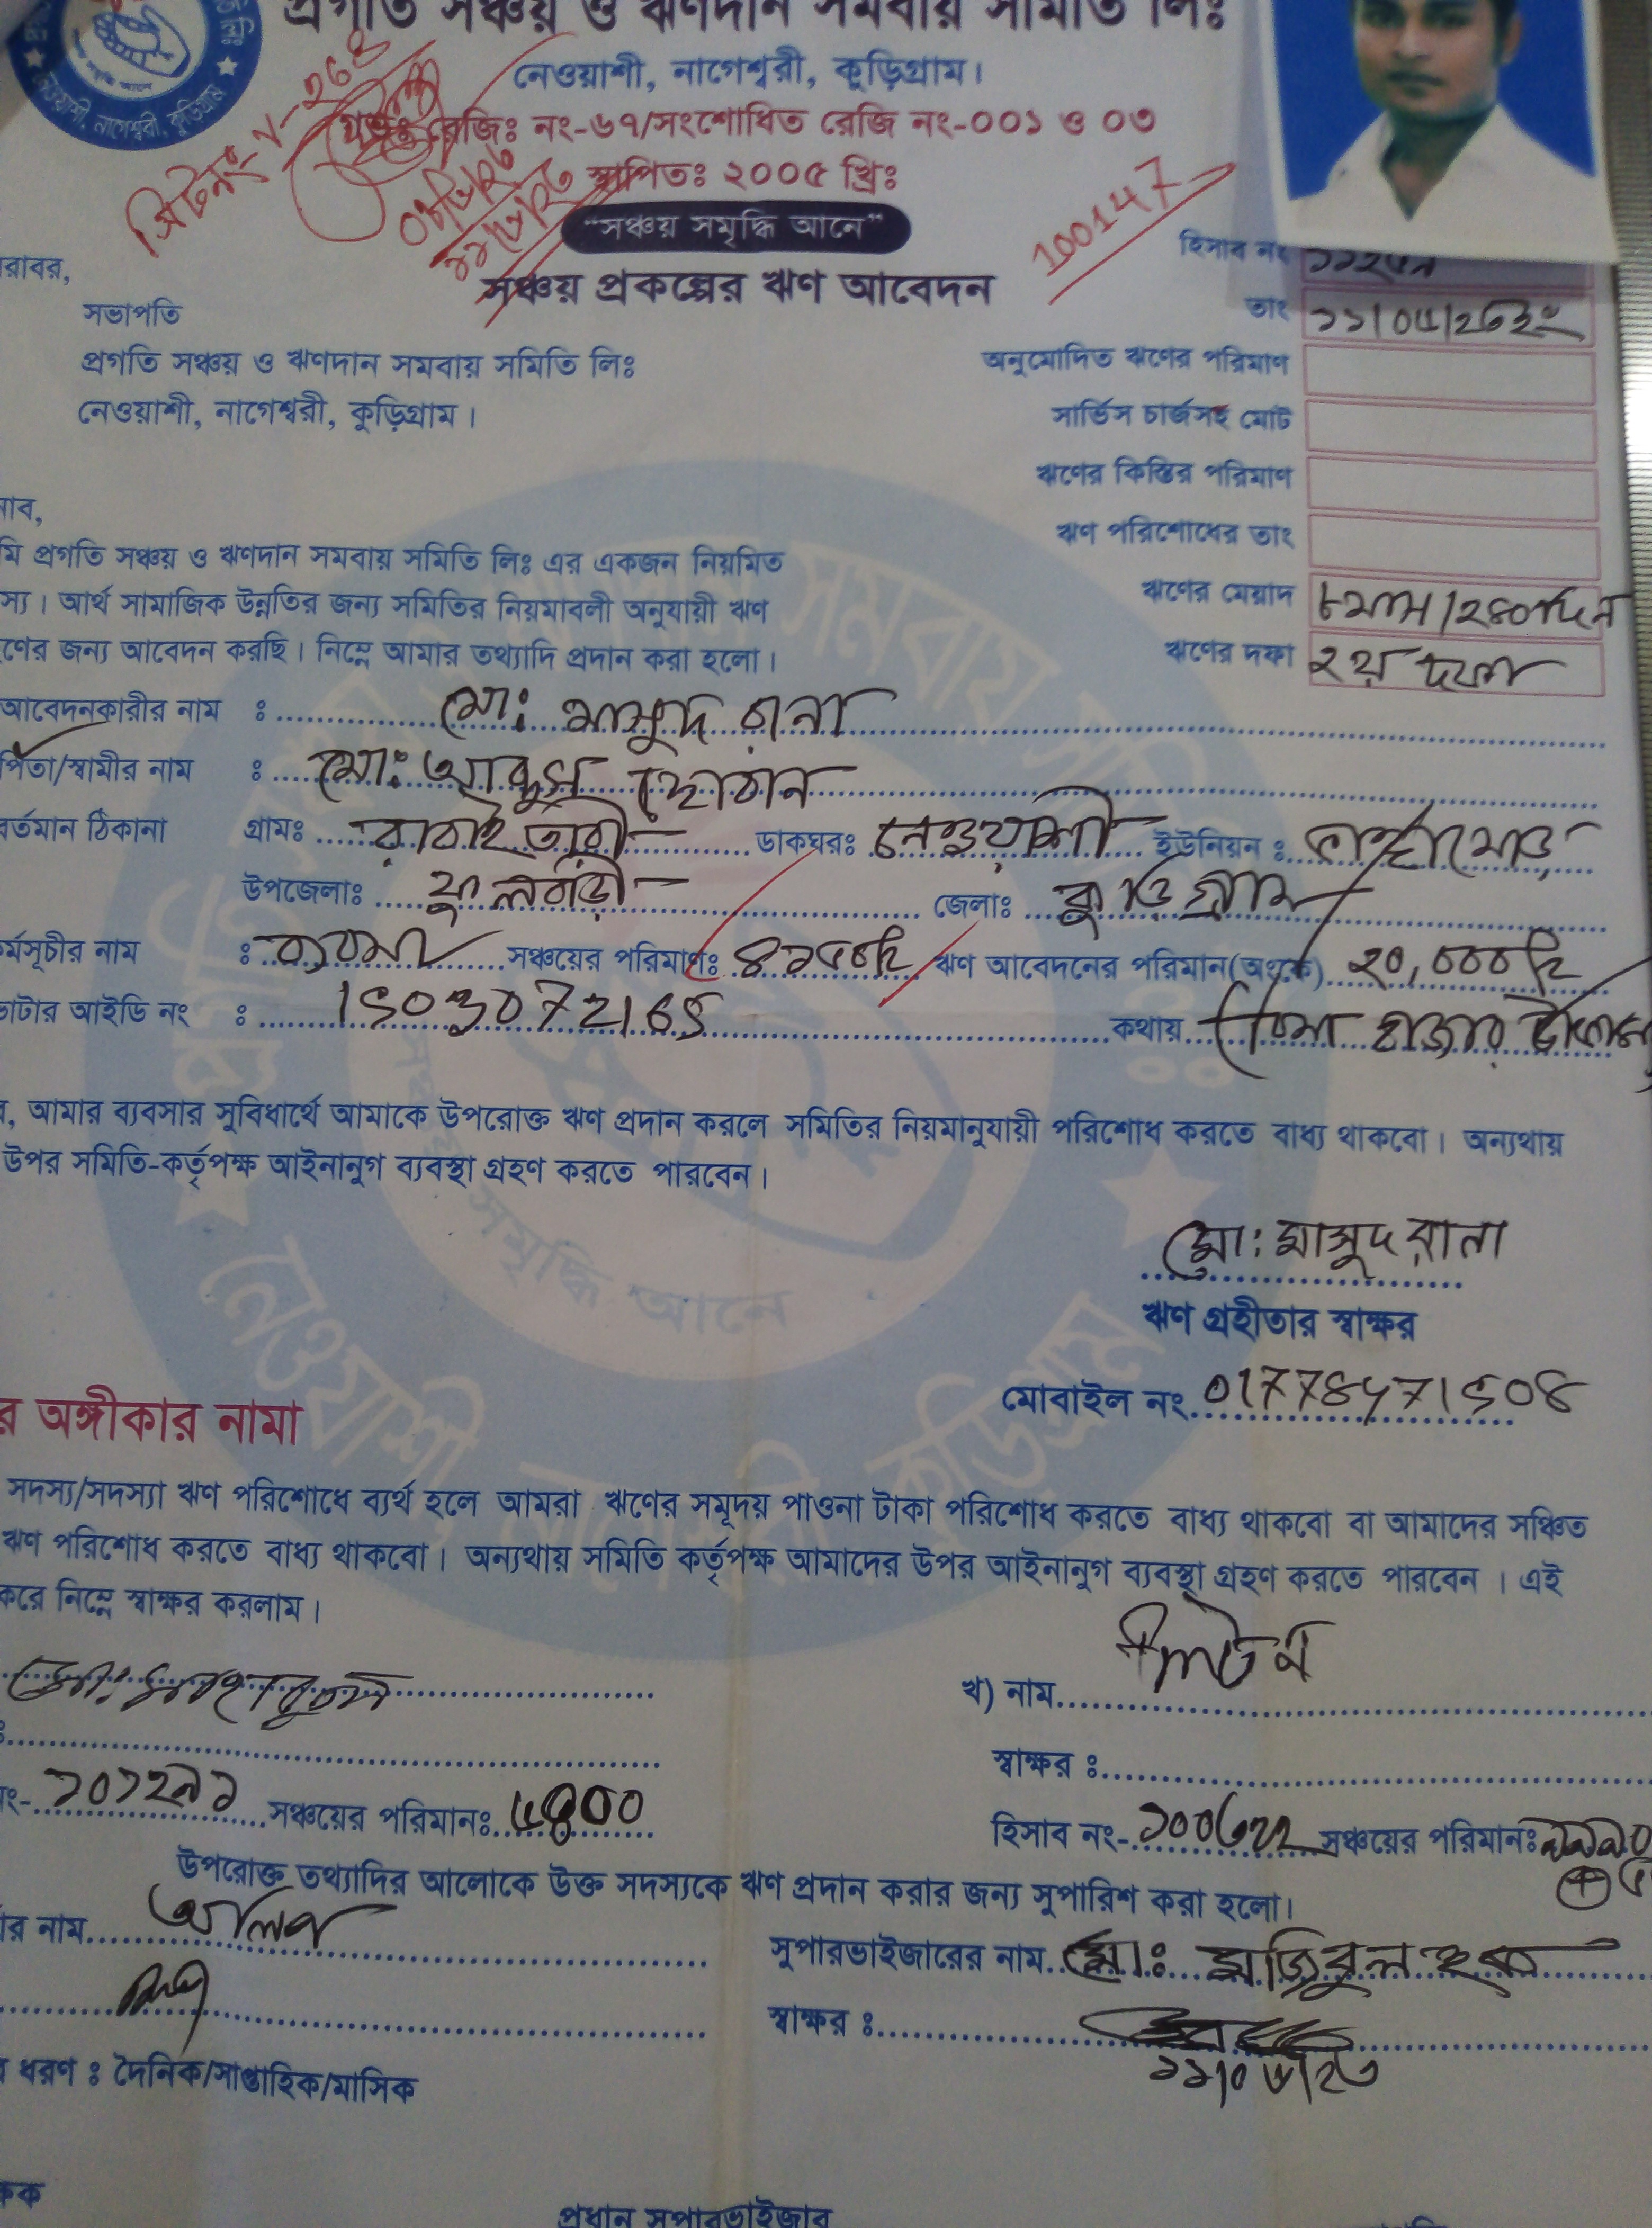 প্রগতি সঞ্চয় ও ঋণদান সমবায় সমিতি লিঃ
নেওয়াশী, নাগেশ্বরী, কুড়িগ্রাম।
রেজিঃ নং-৬৭/সংশোধিত রেজি নং-০০১ ও ০৩
স্থাপিতঃ ২০০৫ খ্রিঃ
"সঞ্চয় সমৃদ্ধি আনে"
100147
সঞ্চয় প্রকল্পের ঋণ আবেদন
হিসাব নং
তাং
রাবর,
সভাপতি
প্রগতি সঞ্চয় ও ঋণদান সমবায় সমিতি লিঃ
নেওয়াশী, নাগেশ্বরী, কুড়িগ্রাম।
অনুমোদিত ঋণের পরিমাণ
সার্ভিস চার্জসহ মোট
ঋণের কিস্তির পরিমাণ
ঋণ পরিশোধের তাং
ঋণের মেয়াদ ৮মাস/২৪০দিন
ঋণের দফা ২য় দফা
নাব,
মি প্রগতি সঞ্চয় ও ঋণদান সমবায় সমিতি লিঃ এর একজন নিয়মিত
স্য। আর্থ সামাজিক উন্নতির জন্য সমিতির নিয়মাবলী অনুযায়ী ঋণ
ণের জন্য আবেদন করছি। নিম্নে আমার তথ্যাদি প্রদান করা হলো।
আবেদনকারীর নাম : মোঃ মাসুদ রানা
পিতা/স্বামীর নাম : মোঃ
বর্তমান ঠিকানা গ্রামঃ রাবাইতারী ডাকঘরঃ নেওয়াশী ইউনিয়ন :
উপজেলাঃ ফুলবাড়ী জেলাঃ কুড়িগ্রাম
র্মসূচীর নাম : ব্যবসা সঞ্চয়ের পরিমাণঃ ঋণ আবেদনের পরিমান(অংকে) ২০,০০০
ভোটার আইডি নং : কথায় বিশ হাজার টাকা
, আমার ব্যবসার সুবিধার্থে আমাকে উপরোক্ত ঋণ প্রদান করলে সমিতির নিয়মানুযায়ী পরিশোধ করতে বাধ্য থাকবো। অন্যথায়
উপর সমিতি-কর্তৃপক্ষ আইনানুগ ব্যবস্থা গ্রহণ করতে পারবেন।
মোঃ মাসুদ রানা
ঋণ গ্রহীতার স্বাক্ষর
মোবাইল নং
র অঙ্গীকার নামা
সদস্য/সদস্যা ঋণ পরিশোধে ব্যর্থ হলে আমরা ঋণের সমূদয় পাওনা টাকা পরিশোধ করতে বাধ্য থাকবো বা আমাদের সঞ্চিত
ঋণ পরিশোধ করতে বাধ্য থাকবো। অন্যথায় সমিতি কর্তৃপক্ষ আমাদের উপর আইনানুগ ব্যবস্থা গ্রহণ করতে পারবেন। এই
করে নিম্নে স্বাক্ষর করলাম।
খ) নাম
স্বাক্ষর :
নং- ১০১২৯১ সঞ্চয়ের পরিমানঃ
হিসাব নং- সঞ্চয়ের পরিমানঃ
উপরোক্ত তথ্যাদির আলোকে উক্ত সদস্যকে ঋণ প্রদান করার জন্য সুপারিশ করা হলো।
র নাম
সুপারভাইজারের নাম মোঃ মজিবুল হক
স্বাক্ষর :
ধরণ : দৈনিক/সাপ্তাহিক/মাসিক
প্রধান সুপারভাইজার